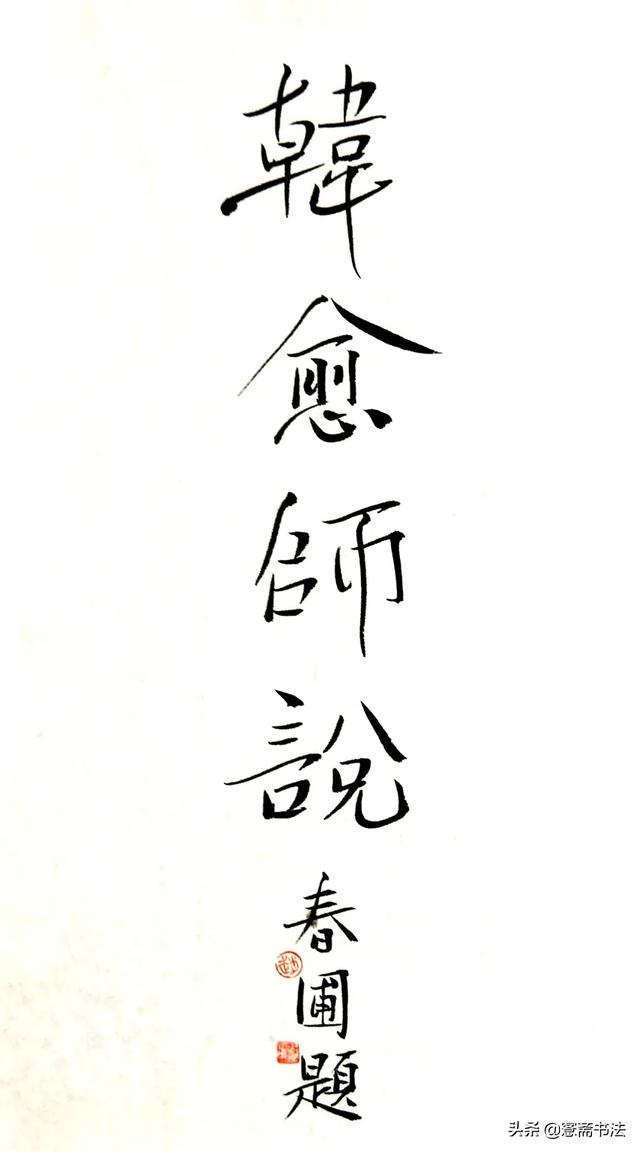 韓愈師說
春圃題
头条 @寋斋书法